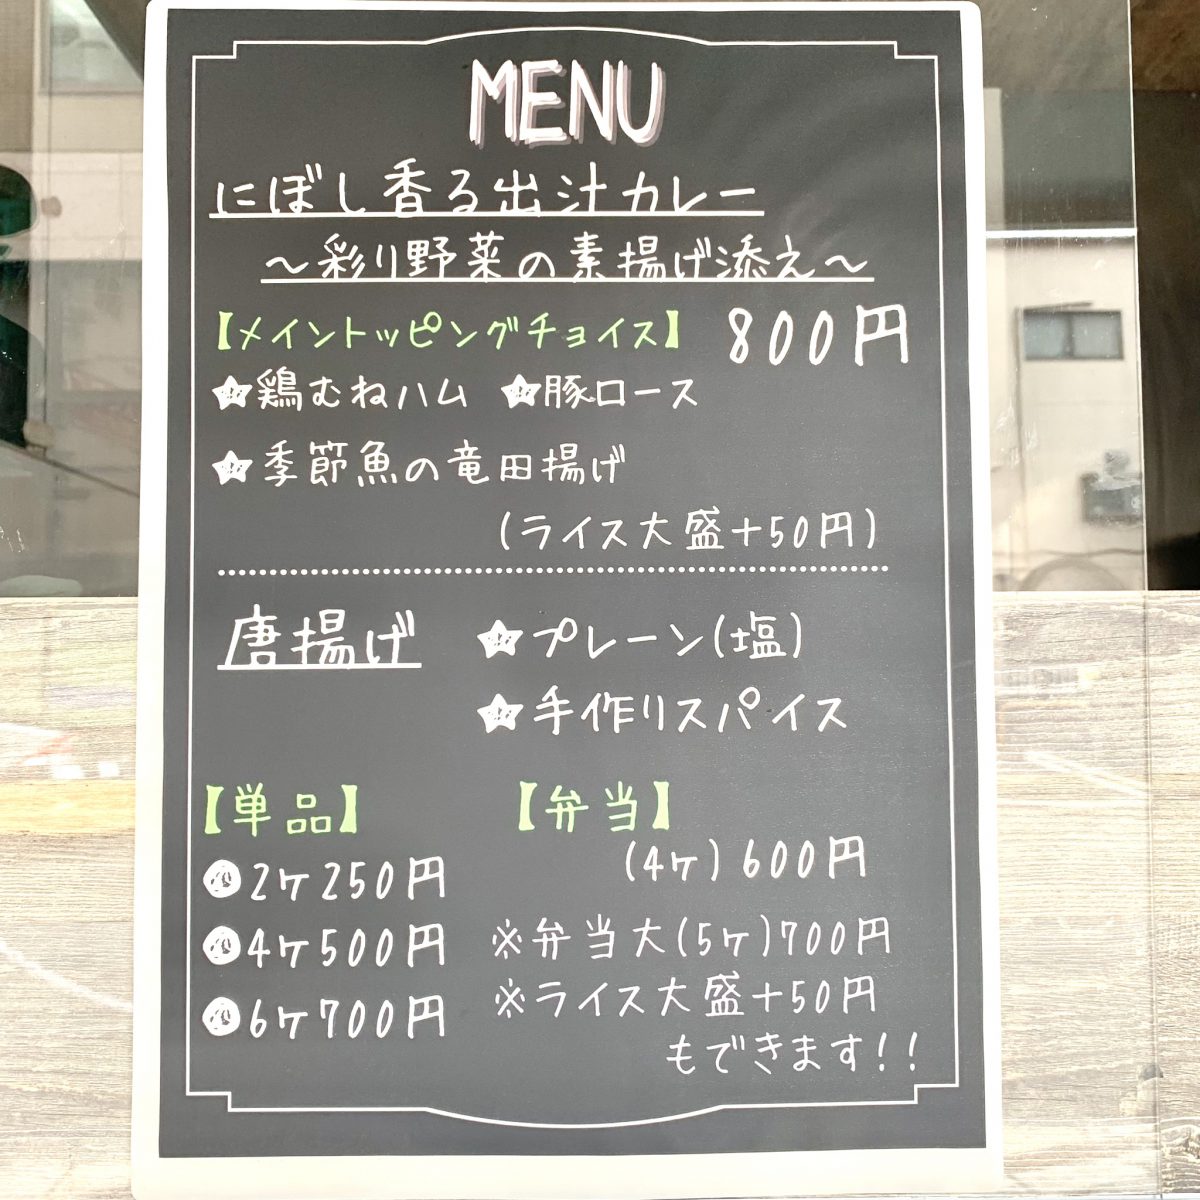 MENU
にぼし香る出汁カレー
～彩り野菜の素揚げ添え～
【メイントッピングチョイス】 800円
★鶏むねハム ★豚ロース
★季節魚の竜田揚げ
(ライス大盛+50円)
唐揚げ ★プレーン(塩)
★手作りスパイス
【単品】 【弁当】
●2ヶ250円 (4ヶ)600円
●4ヶ500円 ※弁当大(5ヶ)700円
●6ヶ700円 ※ライス大盛+50円
もできます!!